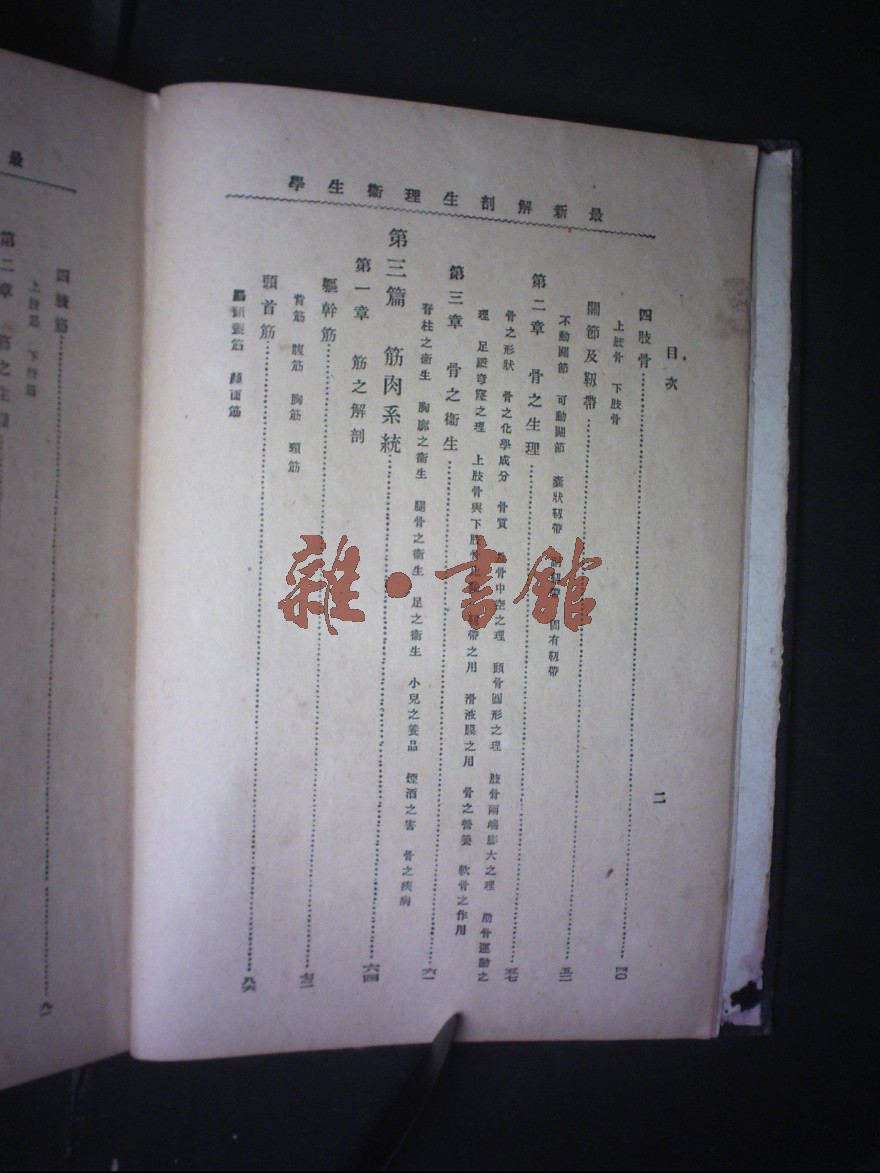 最新解剖生理衞生學
目次
二
四肢骨 四〇
上肢骨 下肢骨
關節及靱帶 五二
不動關節 可動關節 囊狀靱帶 固有靱帶
第二章 骨之生理 五七
骨之形狀 骨之化學成分 骨質 骨中空之理 頭骨圓形之理 肢骨兩端膨大之理 肋骨運動之
理 足蹠穹窿之理 上肢骨與下肢骨 靱帶之用 滑液膜之用 骨之營養 軟骨之作用
第三章 骨之衞生 六一
脊柱之衞生 胸廓之衞生 腿骨之衞生 足之衞生 小兒之養品 煙酒之害 骨之疾病
第三篇 筋肉系統 六四
第一章 筋之解剖
軀幹筋 七二
背筋 腹筋 胸筋 頸筋
頭首筋 八六
顏面筋
最
四肢筋 八
上肢筋 下肢筋
第二章 筋之生理
雜·書館